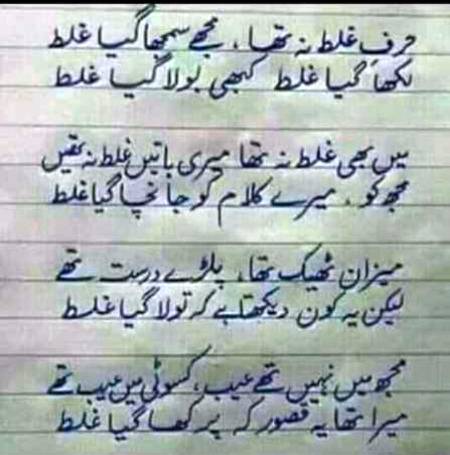 حرفِ غلط نہ تھا، مجھے سمجھا گیا غلط
لکھا گیا غلط کبھی بولا گیا غلط
میں بھی غلط نہ تھا میری باتیں غلط نہ تھیں
مجھ کو، میرے کلام کو جانچا گیا غلط
میزان ٹھیک تھا، پلڑے درست تھے
لیکن یہ کون دیکھتا ہے کہ تولا گیا غلط
مجھ میں نہیں تھے عیب، کسوٹی میں عیب تھے
میرا تھا یہ قصور کہ پرکھا گیا غلط